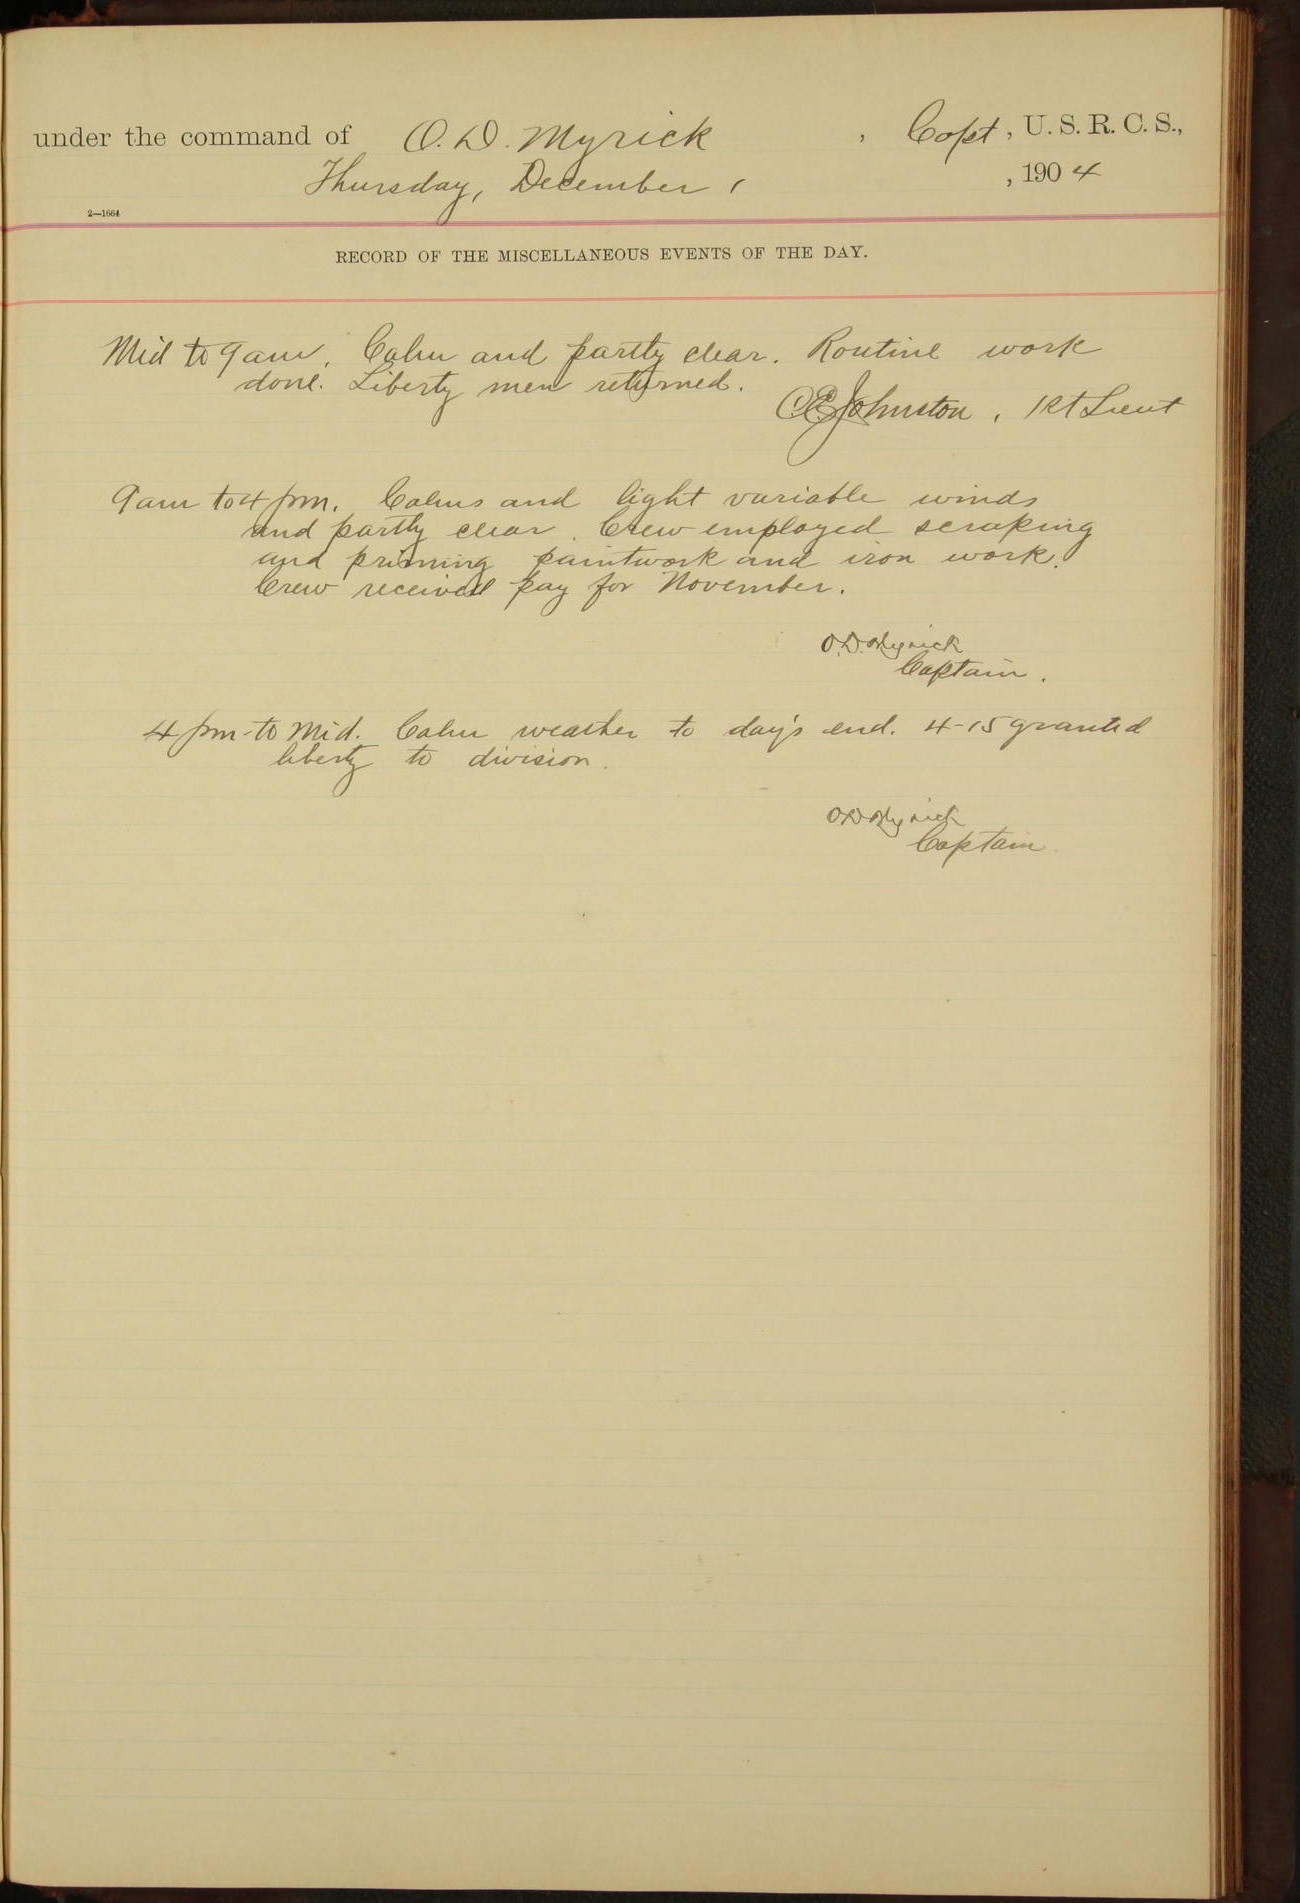 under the command of O. D. Myrick , Capt , U. S. R. C. S.,
Thursday, December 1 , 1904
2—1664
RECORD OF THE MISCELLANEOUS EVENTS OF THE DAY.
Mid to 9 am. Calm and partly clear. Routine work
done. Liberty men returned.
C.E. Johnston, 1st Lieut
9 am to 4 pm. Calms and light variable winds
and partly clear. Crew employed scraping
and priming paintwork and iron work.
Crew received pay for November.
O.D. Myrick
Captain.
4 pm - to Mid. Calm weather to day's end. 4-15 granted
liberty to division.
O.D. Myrick
Captain.